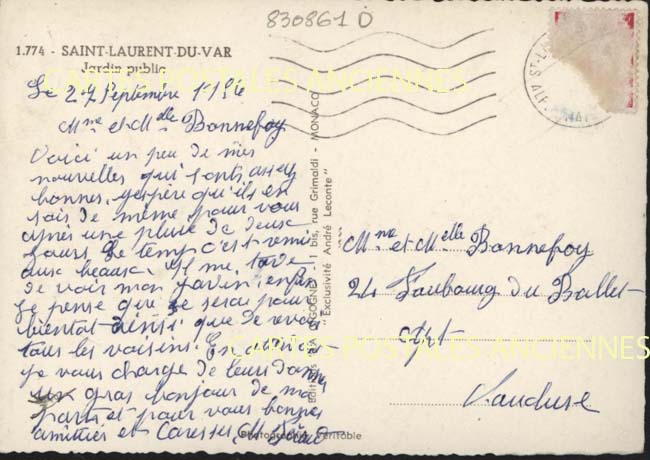 830861 D
1.774 - SAINT-LAURENT-DU-VAR
Jardin public
CARTES POSTALES ANCIENNES
Le 27 Septembre
Mme et Melle Bonnefoy
Voici un peu de mes
nouvelles qui sont assez
bonnes, j'espère qu'ils en
sois de même pour vous
après une pluie de deux
jours le temps c'est remis
aux beaux. Il me tarde
de voir mon jardin, enfin
Je pense que ce serai pour
bientôt ainsi que de revoir
tous les voisins. En
je vous charge de leurs donner
un gros bonjour de ma
part et pour vous bonnes
amittier et Caresses M
Photographie Véritable
Editions "LA CIGOGNE" - 11 bis, rue Grimaldi - MONACO
"Exclusivité André Leconte"
ST-L
Mme et Melle Bonnefoy
24 Faubourg du Ballet
Apt
CARTES POSTALES ANCIENNES
Vaucluse